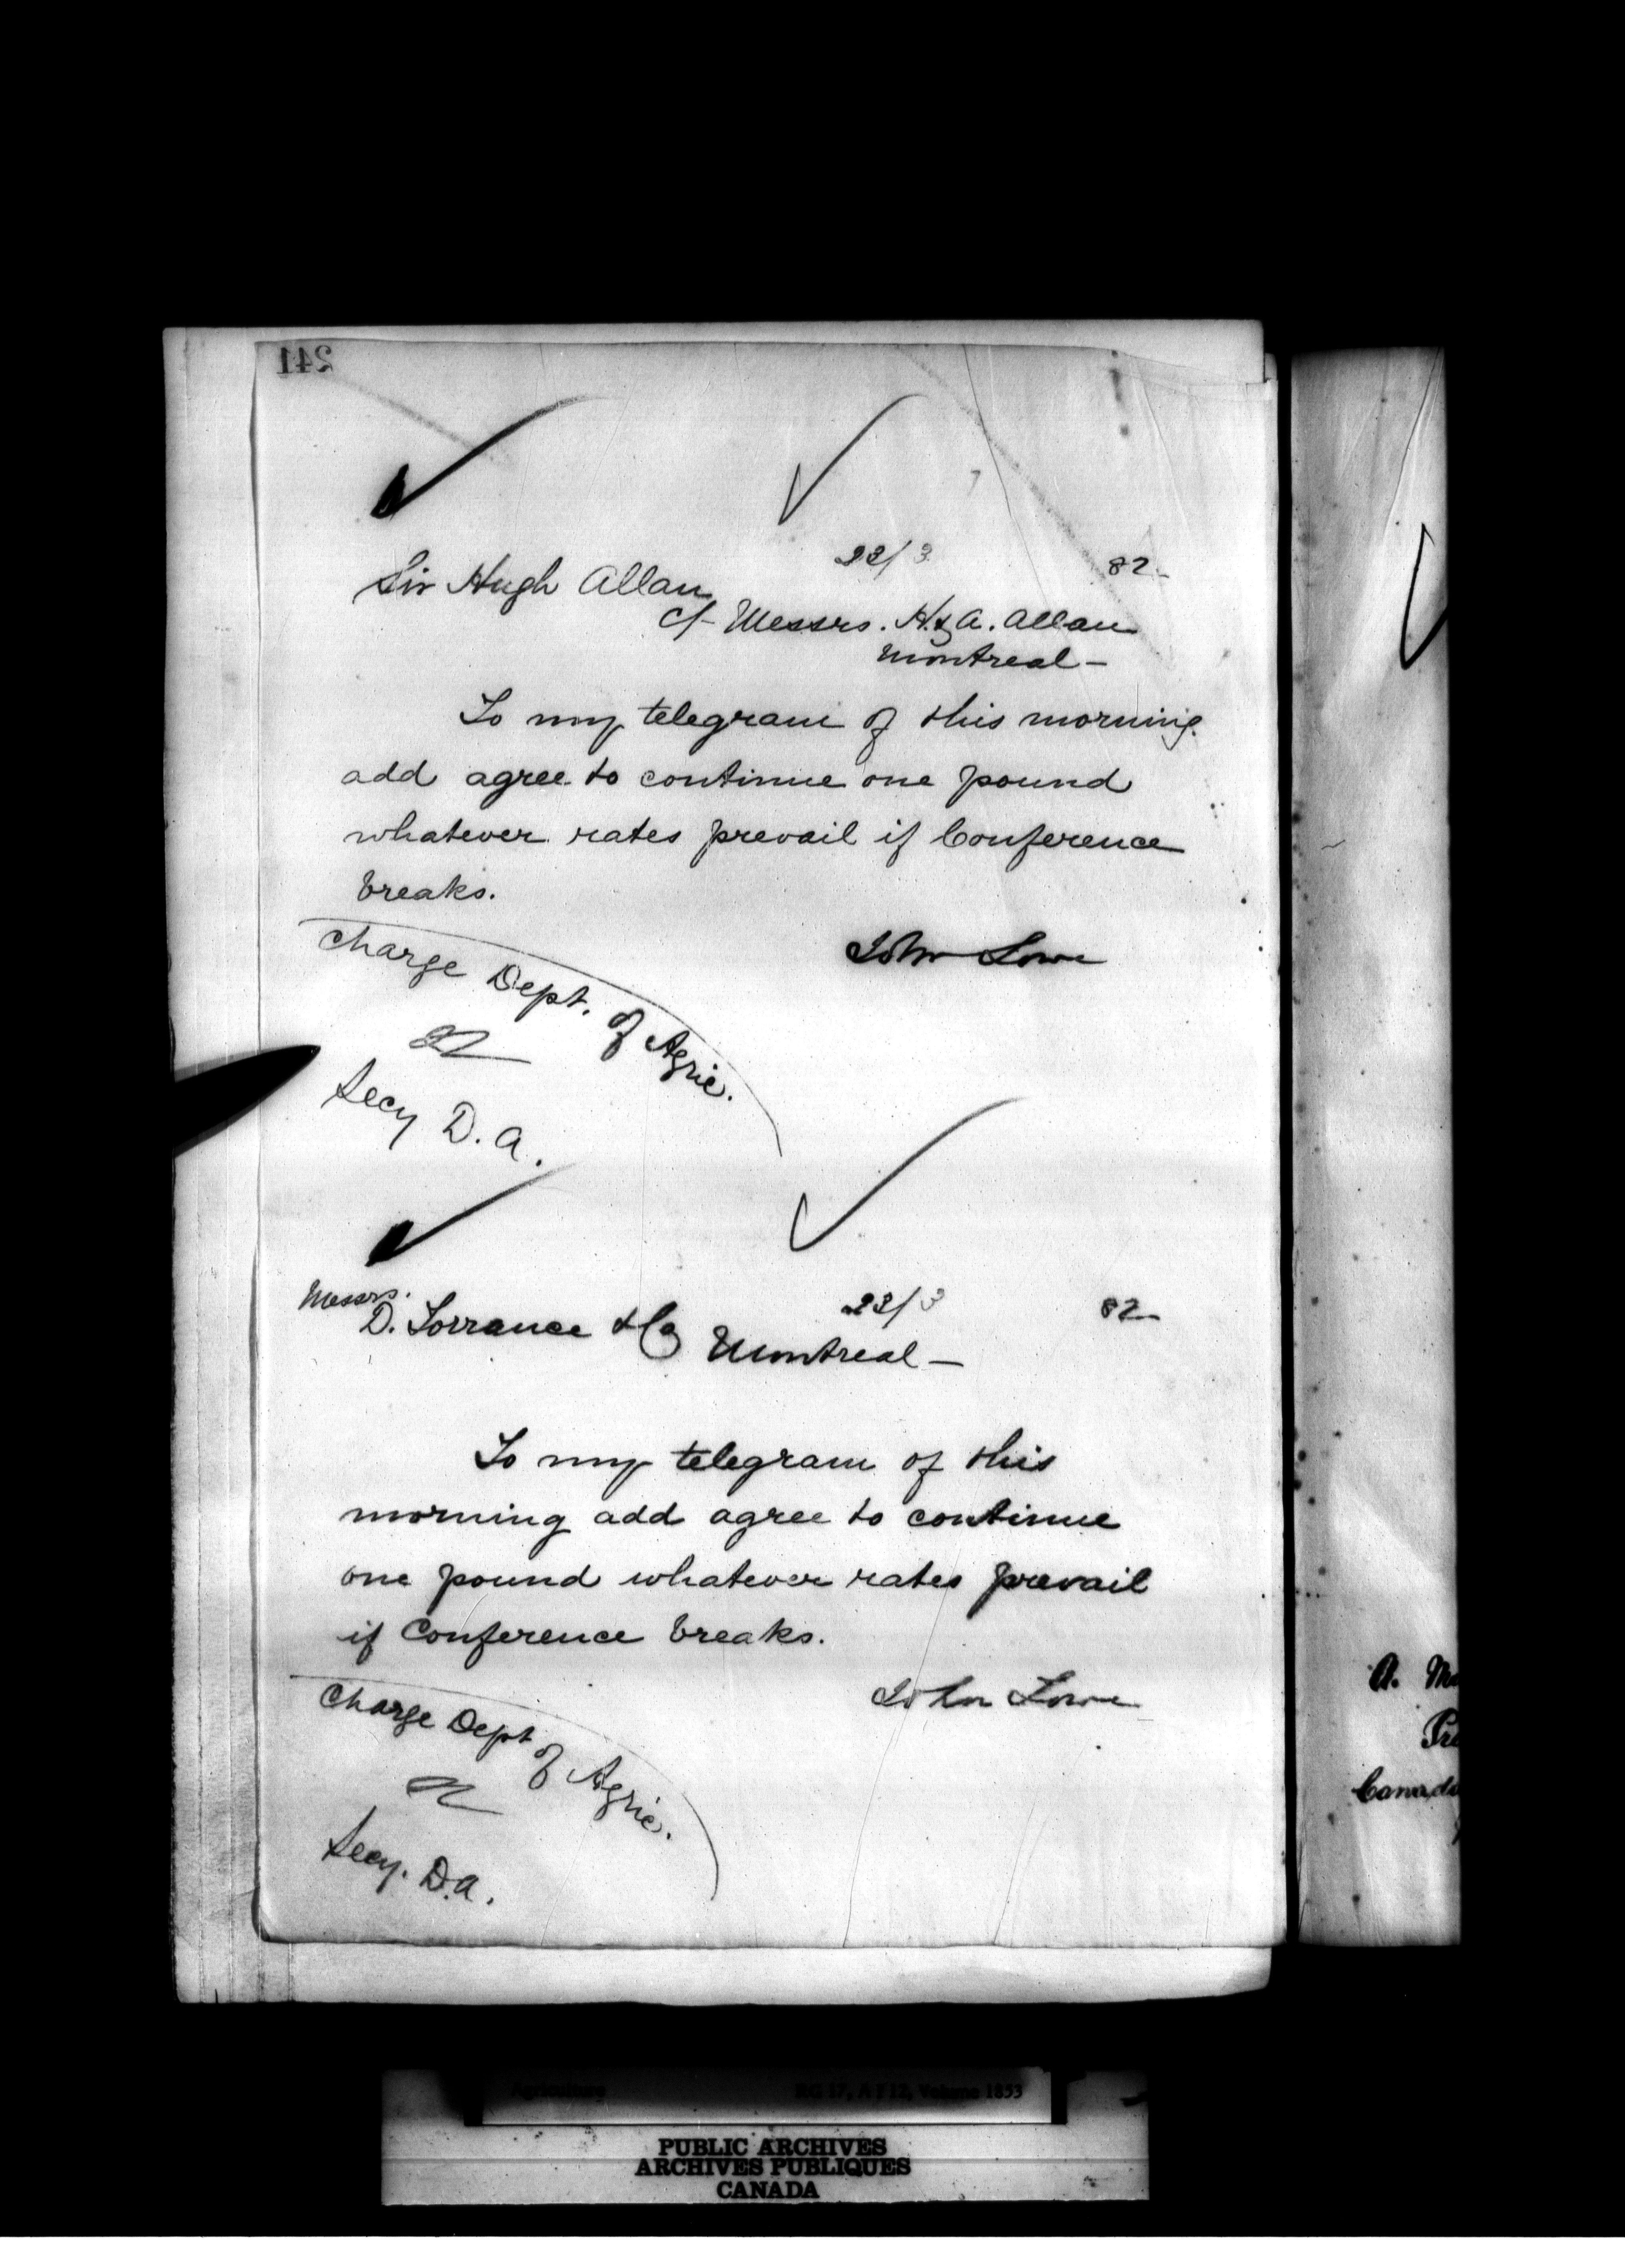 241
22/3 82-
Sir Hugh Allan
c/- Messrs. H. & A. Allan
Montreal -
To my telegram of this morning
add agree to continue one pound
whatever rates prevail if Conference
breaks.
John Lowe
Charge Dept. of Agric.
Secy D. A.
Messrs. 23/3 82-
D. Torrance & Co
Montreal -
To my telegram of this
morning add agree to continue
one pound whatever rates prevail
if Conference breaks.
John Lowe
Charge Dept of Agric.
Secy. D.A.
A.
Canada
Agriculture RG 17, A I 12, Volume 1853
PUBLIC ARCHIVES
ARCHIVES PUBLIQUES
CANADA